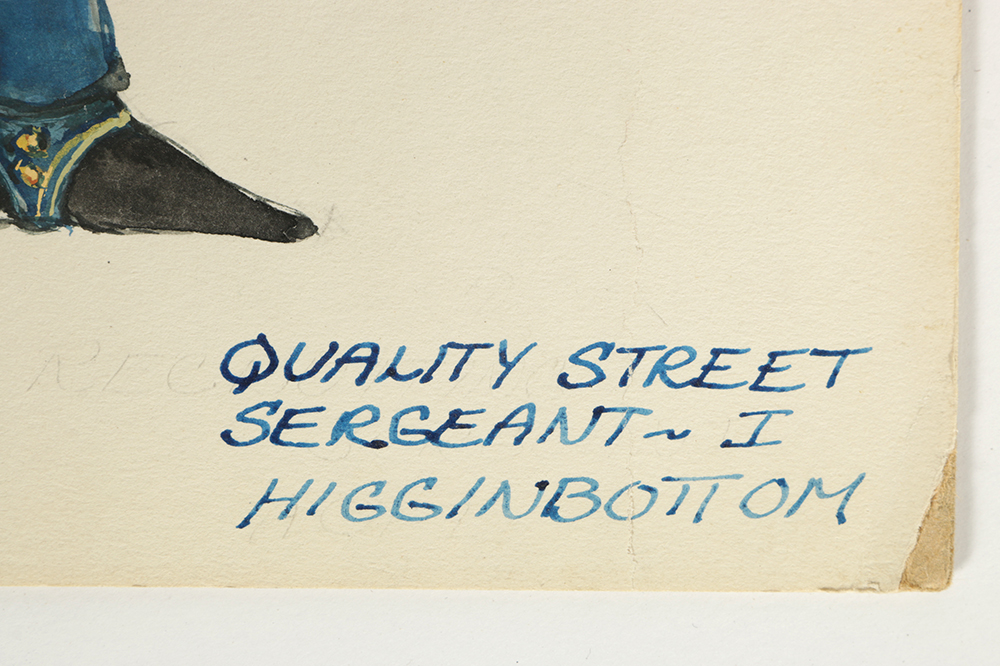 QUALITY STREET
SERGEANT ~ I
HIGGINBOTTOM